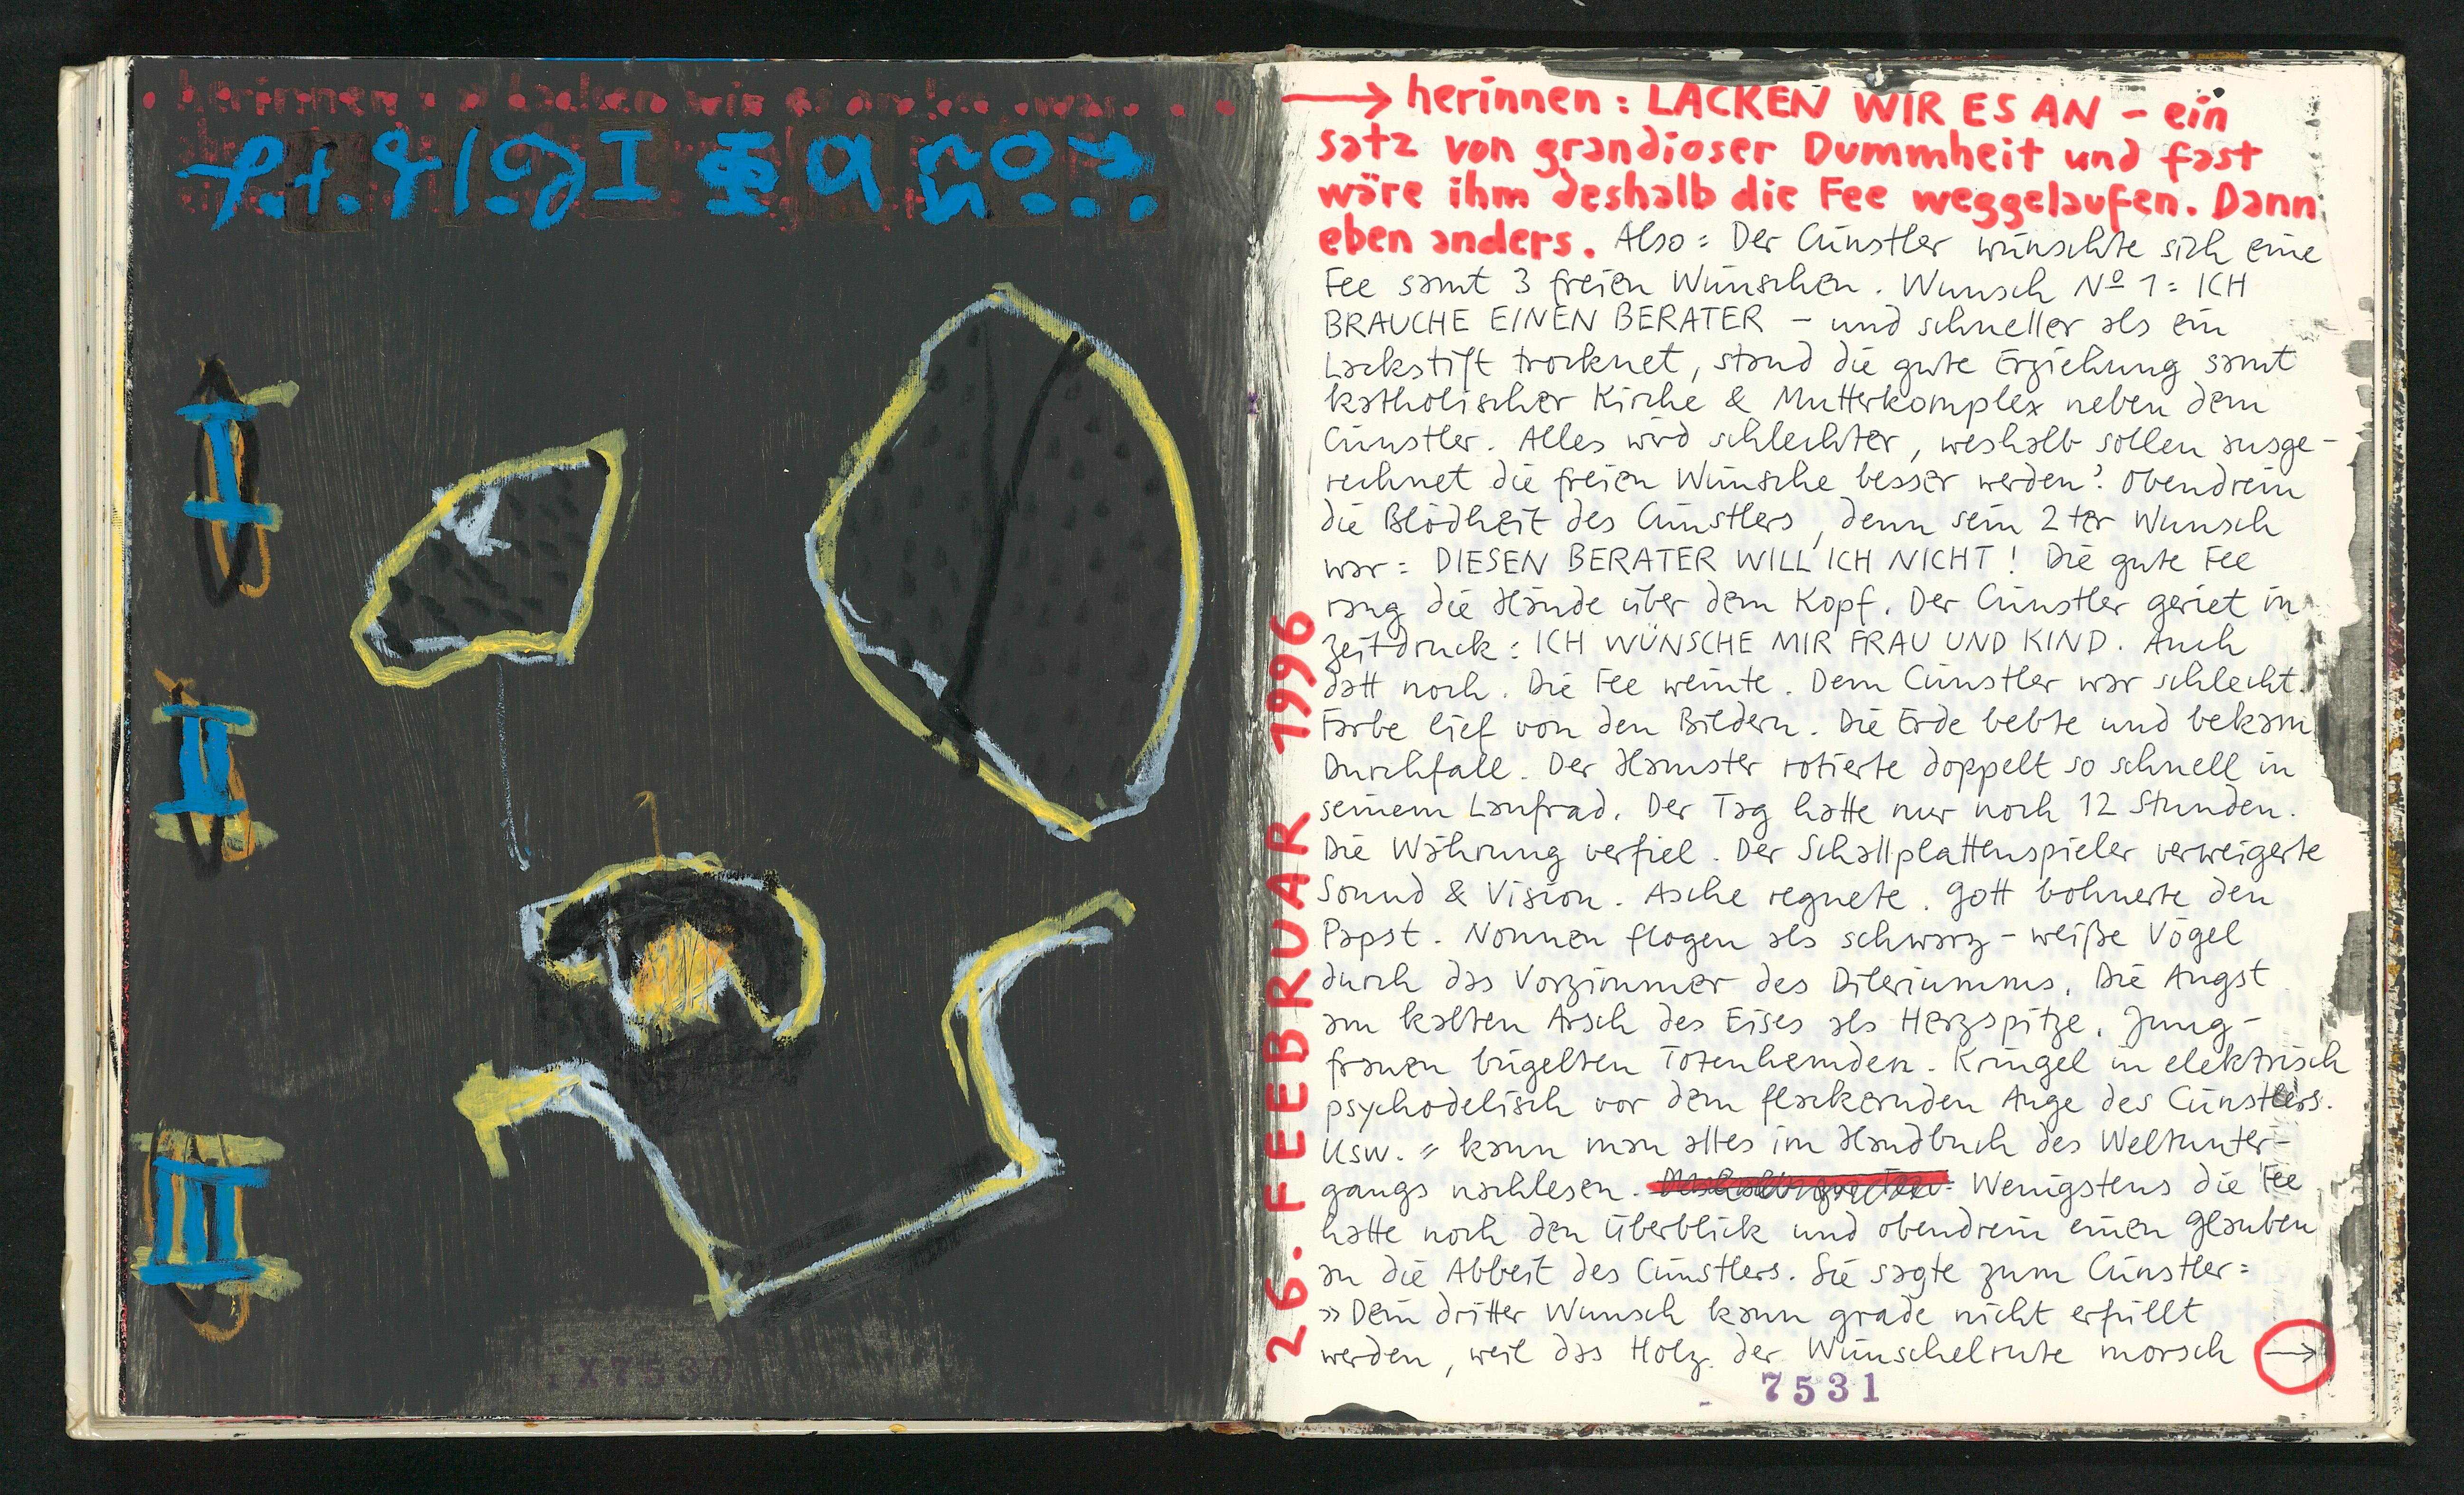 herinnen
I
II
III
X7530
→ herinnen : LACKEN WIR ES AN – ein
satz von grandioser Dummheit und fast
wäre ihm deshalb die Fee weggelaufen. Dann
eben anders. Also = Der Cünstler wünschte sich eine
Fee samt 3 freien Wünschen. Wunsch Nº 1 = ICH
BRAUCHE EINEN BERATER – und schneller als ein
Lackstift trocknet, stand die gute Erziehung samt
katholischer Kirche & Mutterkomplex neben dem
Cünstler. Alles wird schlechter, weshalb sollen ausge-
rechnet die freien Wünsche besser werden? Obendrein
die Blödheit des Cünstlers, denn sein 2ter Wunsch
war = DIESEN BERATER WILL ICH NICHT! Die gute Fee
rang die Hände über dem Kopf. Der Cünstler geriet in
Zeitdruck : ICH WÜNSCHE MIR FRAU UND KIND. Auch
datt noch. Die Fee weinte. Dem Cünstler war schlecht.
Farbe lief von den Bildern. Die Erde bebte und bekam
Durchfall. Der Hamster rotierte doppelt so schnell in
seinem Laufrad. Der Tag hatte nur noch 12 Stunden.
Die Währung verfiel. Der Schallplattenspieler verweigerte
Sound & Vision. Asche regnete. Gott bohnerte den
Papst. Nonnen flogen als schwarz-weiße Vögel
durch das Vorzimmer des Dileriumms. Die Angst
am kalten Arsch des Eises als Herzspitze. Jung-
frauen bügelten Totenhemden. Kringel in elektrisch
psychodelisch vor dem flackernden Auge des Cünstlers.
Usw. = kann man alles im Handbuch des Weltunter-
gangs nachlesen. Wenigstens die Fee
hatte noch den Überblick und obendrein einen Glauben
an die Abbeit des Cünstlers. Sie sagte zum Cünstler =
»Dein dritter Wunsch kann grade nicht erfüllt
werden, weil das Holz der Wünschelrute morsch →
7531
26. FEEBRUAR 1996